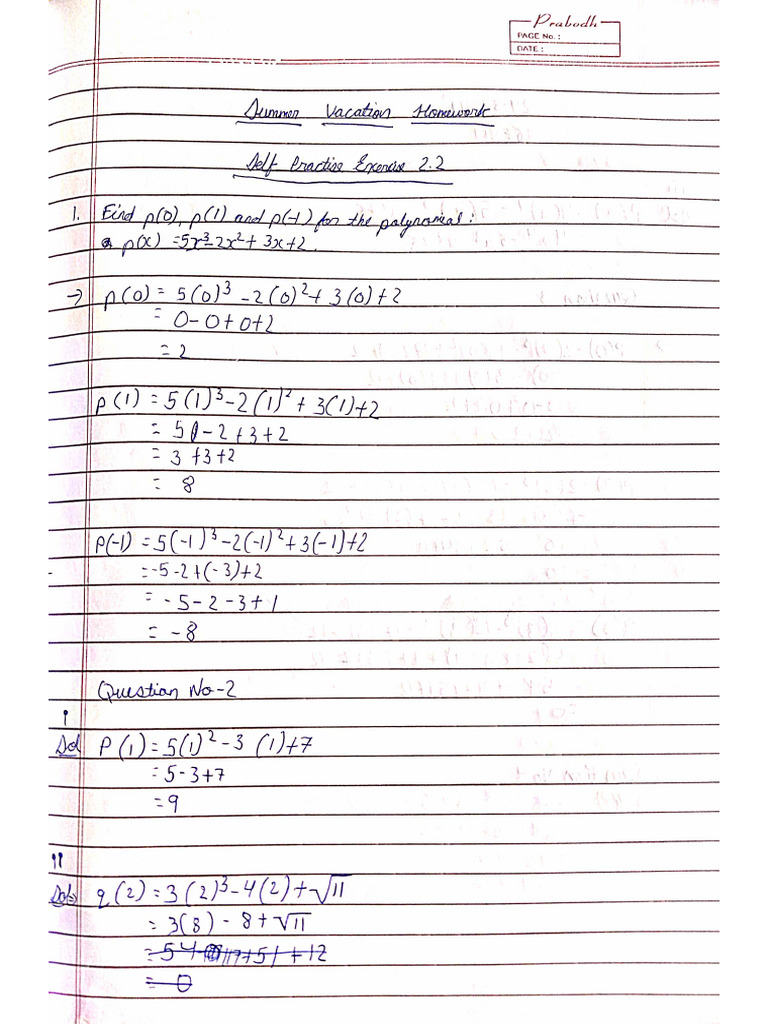 Prabodh
PAGE No. :
DATE :
Summer Vacation Homework
Self Practise Exercise 2.2
1. Find p(0), p(1) and p(-1) for the polynomial:
p(x) = 5x³-2x²+3x+2.
→ p(0) = 5(0)³ -2(0)²+3(0)+2
= 0-0+0+2
= 2
p(1) = 5(1)³-2(1)²+3(1)+2
= 5-2+3+2
= 3+3+2
= 8
p(-1) = 5(-1)³-2(-1)²+3(-1)+2
= -5-2+(-3)+2
= -5-2-3+1
= -8
Question No-2
i
Sol P(1) = 5(1)²-3(1)+7
= 5-3+7
= 9
ii
Sol> q(2) = 3(2)³-4(2)+√11
= 3(8)-8+√11
= 0